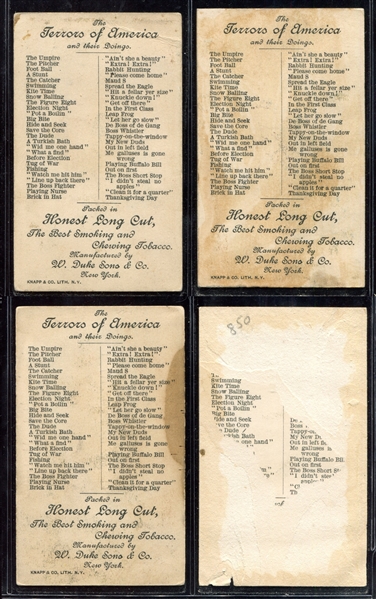 The
Terrors of America
and their Doings.
The Umpire "Ain't she a beauty"
The Pitcher "Extra! Extra!"
Foot Ball Rabbit Hunting
A Stunt "Please come home"
The Catcher Maud S
Swimming Spread the Eagle
Kite Time "Hit a feller yer size"
Snow Balling "Knuckle down!"
The Figure Eight "Get off there"
Election Night In the First Class
"Pot a Boilin" Leap Frog
Big Bite "Let her go slow"
Hide and Seek De Boss of de Gang
Save the Core Boss Whistler
The Dude Tappy-on-the-window
A Turkish Bath My New Duds
"Wid me one hand" Out in left field
"What a find" Me galluses is gone
Before Election wrong
Tug of War Playing Buffalo Bill
Fishing Out on first
"Watch me hit him" The Boss Short Stop
"Line up back there" "I didn't steal no
The Boss Fighter apples"
Playing Nurse "Clean it for a quarter"
Brick in Hat Thanksgiving Day
Packed in
Honest Long Cut,
The Best Smoking and
Chewing Tobacco.
Manufactured by
W. Duke Sons & Co.
New York.
KNAPP & CO. LITH. N.Y.
The
Terrors of America
and their Doings.
The Umpire "Ain't she a beauty"
The Pitcher "Extra! Extra!"
Foot Ball Rabbit Hunting
A Stunt "Please come home"
The Catcher Maud S
Swimming Spread the Eagle
Kite Time "Hit a feller yer size"
Snow Balling "Knuckle down!"
The Figure Eight "Get off there"
Election Night In the First Class
"Pot a Boilin" Leap Frog
Big Bite "Let her go slow"
Hide and Seek De Boss of de Gang
Save the Core Boss Whistler
The Dude Tappy-on-the-window
A Turkish Bath My New Duds
"Wid me one hand" Out in left field
"What a find" Me galluses is gone
Before Election wrong
Tug of War Playing Buffalo Bill
Fishing Out on first
"Watch me hit him" The Boss Short Stop
"Line up back there" "I didn't steal no
The Boss Fighter apples"
Playing Nurse "Clean it for a quarter"
Brick in Hat Thanksgiving Day
Packed in
Honest Long Cut,
The Best Smoking and
Chewing Tobacco.
Manufactured by
W. Duke Sons & Co.
New York.
KNAPP & CO. LITH. N.Y.
The
Terrors of America
and their Doings.
The Umpire "Ain't she a beauty"
The Pitcher "Extra! Extra!"
Foot Ball Rabbit Hunting
A Stunt "Please come home"
The Catcher Maud S
Swimming Spread the Eagle
Kite Time "Hit a feller yer size"
Snow Balling "Knuckle down!"
The Figure Eight "Get off there"
Election Night In the First Class
"Pot a Boilin" Leap Frog
Big Bite "Let her go slow"
Hide and Seek De Boss of de Gang
Save the Core Boss Whistler
The Dude Tappy-on-the-window
A Turkish Bath My New Duds
"Wid me one hand" Out in left field
"What a find" Me galluses is gone
Before Election wrong
Tug of War Playing Buffalo Bill
Fishing Out on first
"Watch me hit him" The Boss Short Stop
"Line up back there" "I didn't steal no
The Boss Fighter apples"
Playing Nurse "Clean it for a quarter"
Brick in Hat Thanksgiving Day
Packed in
Honest Long Cut,
The Best Smoking and
Chewing Tobacco.
Manufactured by
W. Duke Sons & Co.
New York.
KNAPP & CO. LITH. N.Y.
850
Swimming
Kite Time
Snow Balling
The Figure Eight
Election Night
"Pot a Boilin"
Big Bite
Hide and Seek De
Save the Core Boss
Dude Tappy-on
ish Bath My New Du
one hand" Out in left
Me galluses is
wrong
Playing Buffalo Bill
Out on first
The Boss Short S
"I didn't steal
apples"
"C
Th